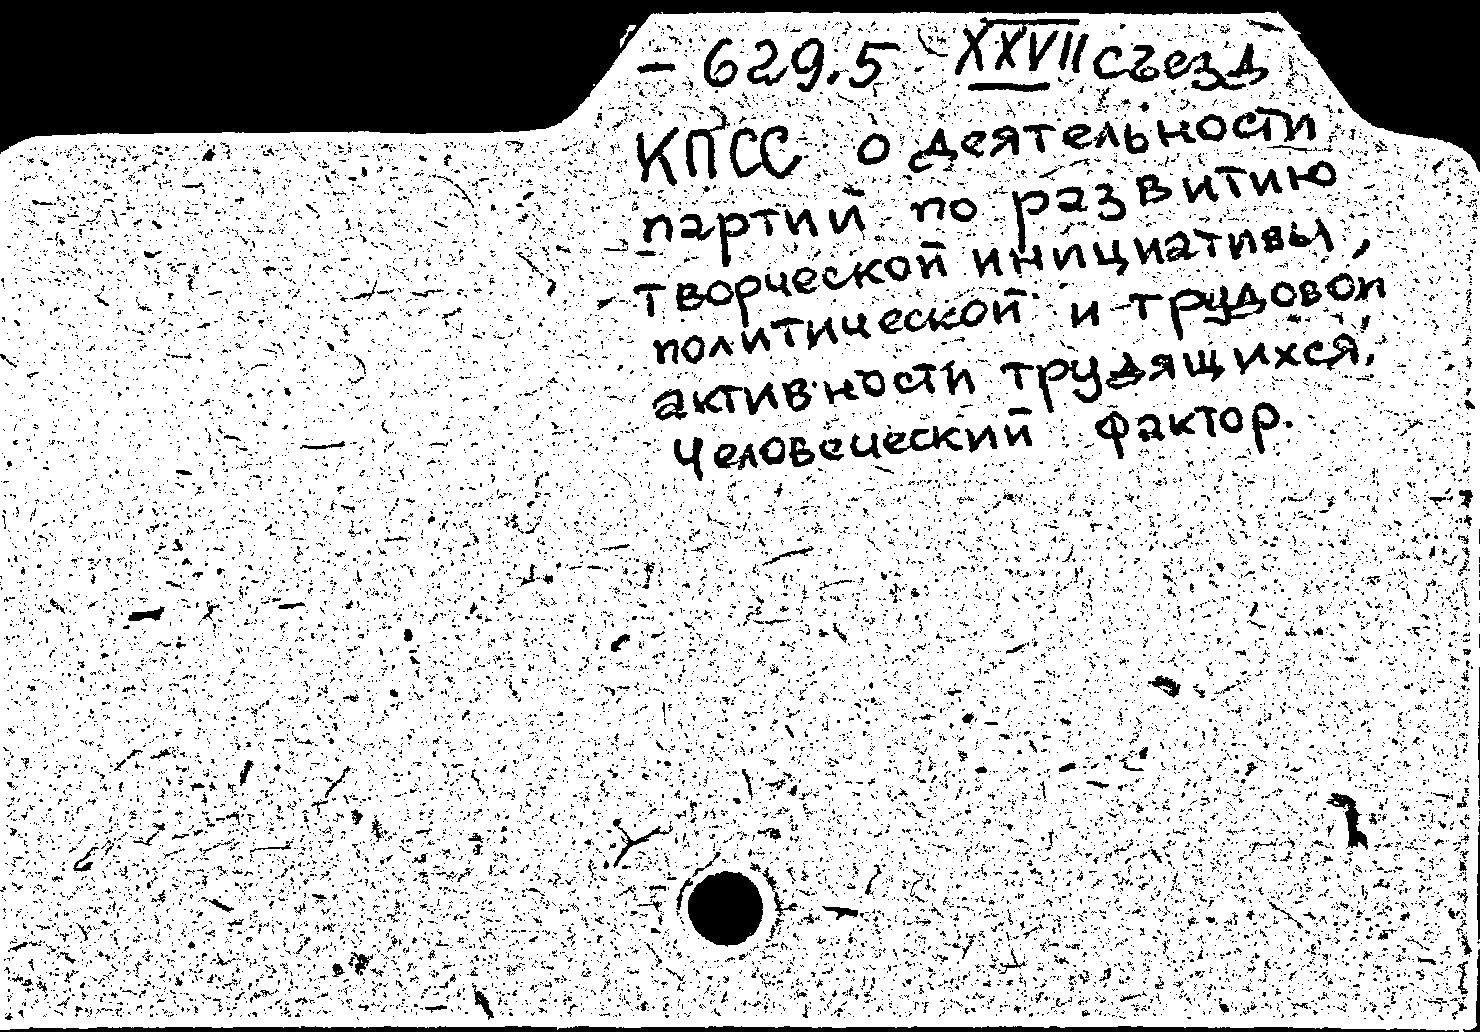 – 629.5 XXVII съезд
КПСС о деятельности
партии по развитию
творческой инициативы,
политической и трудовой
активности трудящихся.
Человеческий фактор.